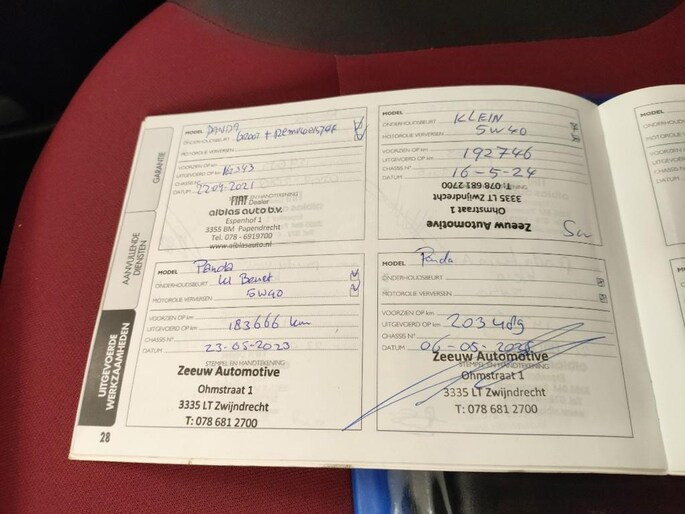 GARANTIE
AANVULLENDE
DIENSTEN
UITGEVOERDE
WERKZAAMHEDEN
28
MODEL PANDA
ONDERHOUDSBEURT GROOT + REMVLOEISTOF
MOTOROLIE VERVERSEN
VOORZIEN OP km
UITGEVOERD OP km
CHASSIS N°
DATUM 22-09-2021
FIAT Dealer
alblas auto b.v.
Espenhof 1
3355 BM Papendrecht
Tel. 078 - 6919700
www.alblasauto.nl
MODEL
ONDERHOUDSBEURT KLEIN
MOTOROLIE VERVERSEN 5W40
VOORZIEN OP km
UITGEVOERD OP km 192746
CHASSIS N°
DATUM 16-5-24
Zeeuw Automotive
Ohmstraat 1
3335 LT Zwijndrecht
T: 078 681 2700
MODEL Panda
ONDERHOUDSBEURT Beurt
MOTOROLIE VERVERSEN 5W40
VOORZIEN OP km
UITGEVOERD OP km 183666 km
CHASSIS N°
DATUM 23-05-2023
STEMPEL EN HANDTEKENING
Zeeuw Automotive
Ohmstraat 1
3335 LT Zwijndrecht
T: 078 681 2700
MODEL Panda
ONDERHOUDSBEURT
MOTOROLIE VERVERSEN
VOORZIEN OP km
UITGEVOERD OP km
CHASSIS N°
DATUM
STEMPEL EN HANDTEKENING
Zeeuw Automotive
Ohmstraat 1
3335 LT Zwijndrecht
T: 078 681 2700